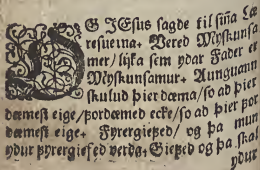 OG JEsus sagde til sijna Læ
resueina. Vered Myskunsa
mer/ lijka sem ydar Fader er
Myskunsamur. Aungvann
skulud þier dæma/ so ad þier
dæmest eige/ Fordæmed ecke/ so ad þier For
dæmest eige. Fyrergiefed/ og þa mun
ydur Fyrergiefed verda. Giefed og þa skal
ydur